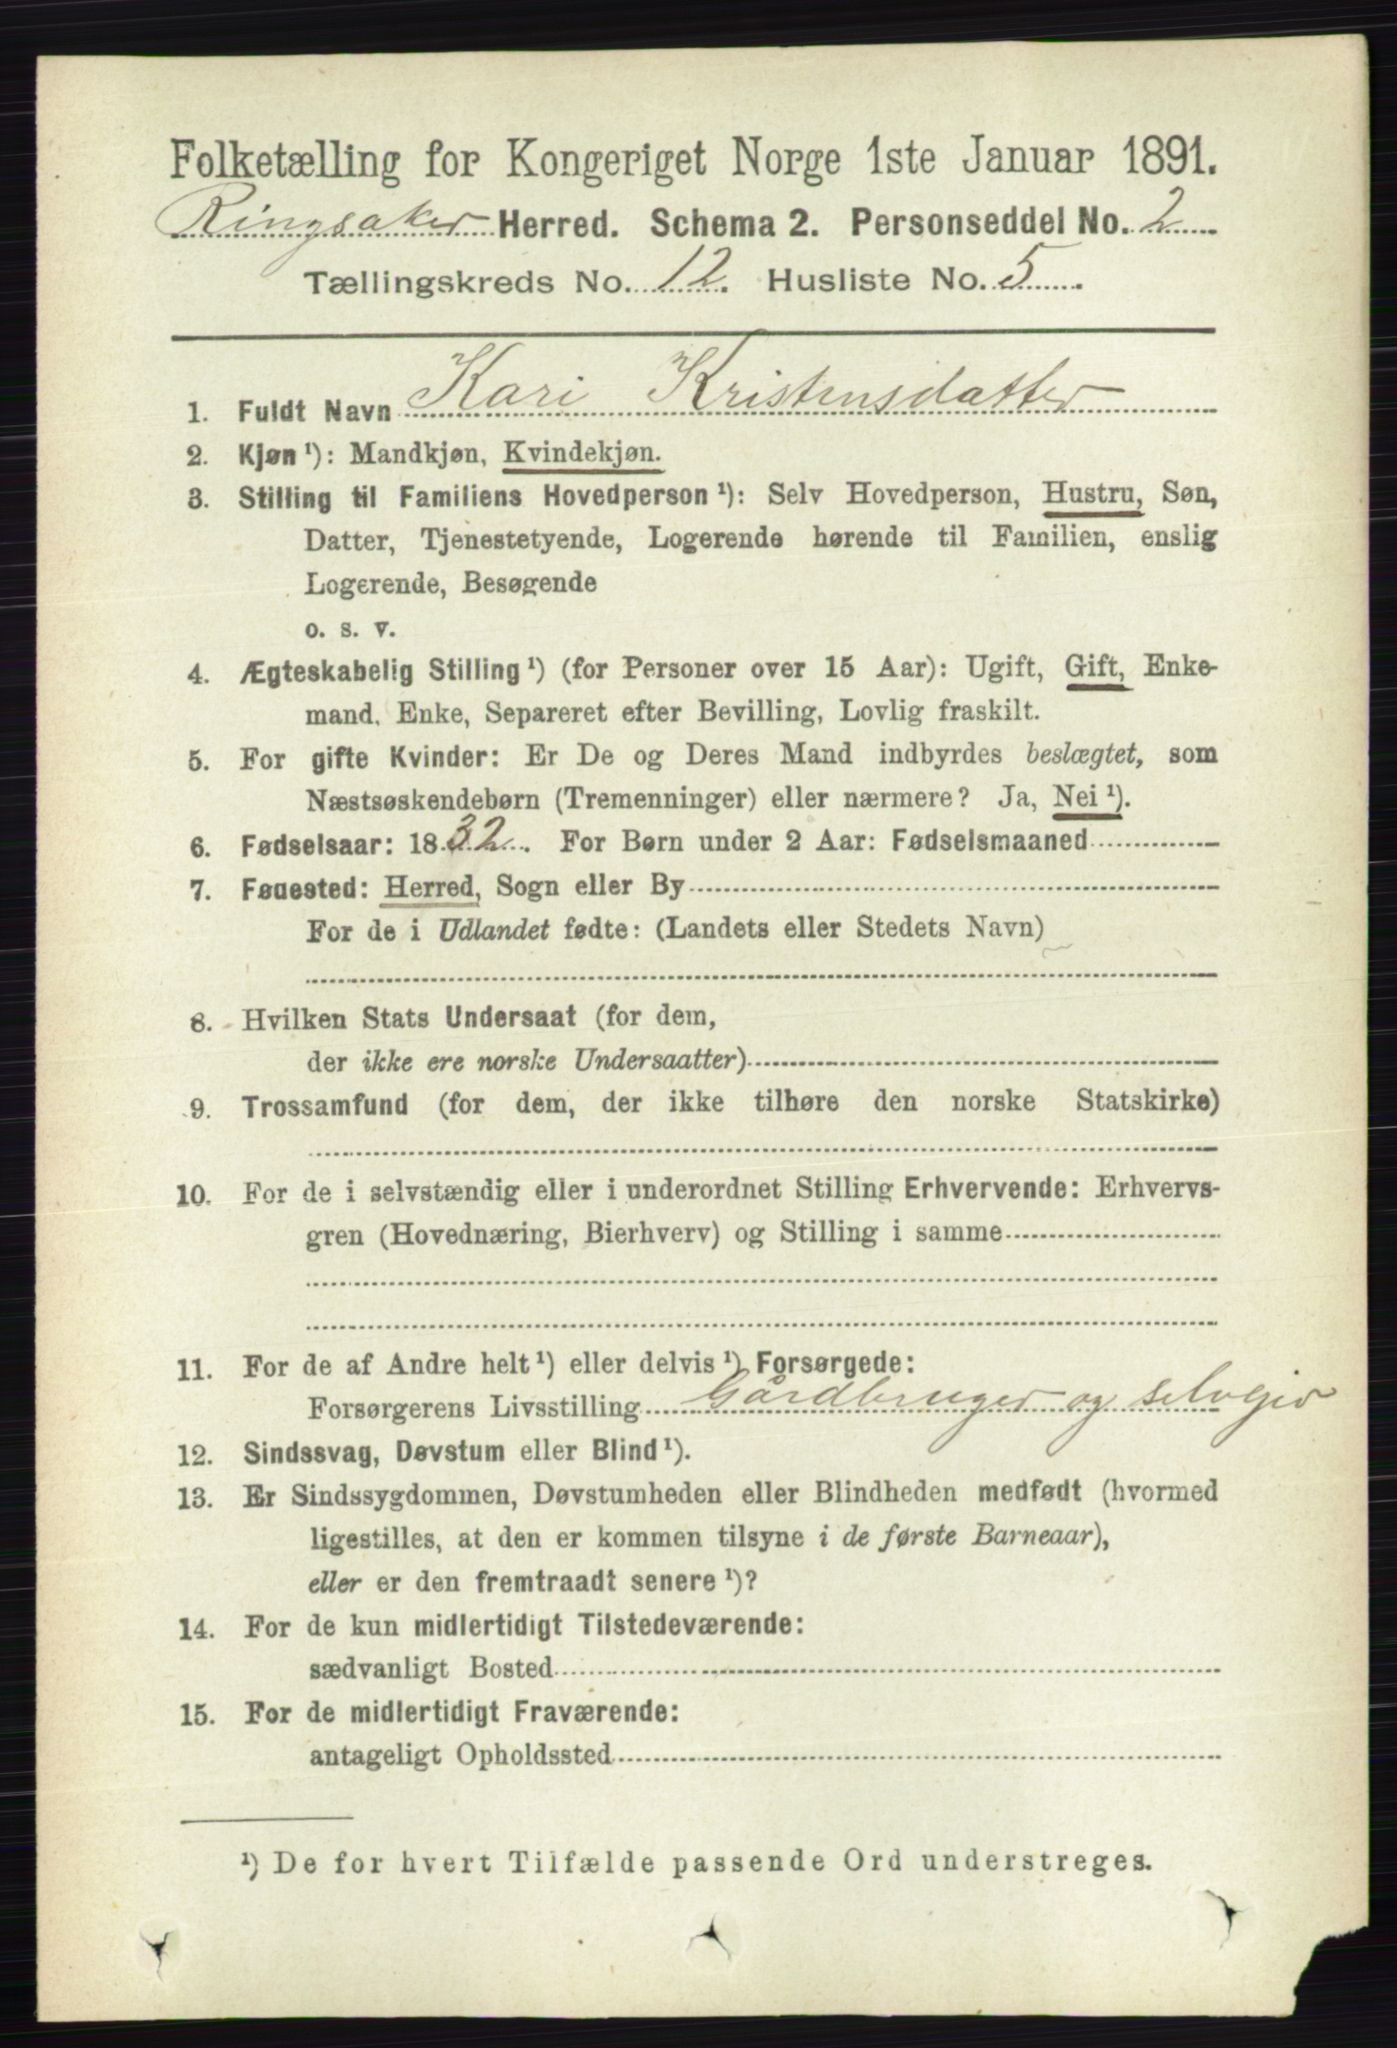 Folketælling for Kongeriget Norge 1ste Januar 1891.
Ringsaker Herred. Schema 2. Personseddel No. 2
Tællingskreds No. 12. Husliste No. 5.
1. Fuldt Navn Kari Kristensdatter
2. Kjøn¹): Mandkjøn, Kvindekjøn.
3. Stilling til Familiens Hovedperson¹): Selv Hovedperson, Hustru, Søn,
Datter, Tjenestetyende, Logerende hørende til Familien, enslig
Logerende, Besøgende
o. s. v.
4. Ægteskabelig Stilling¹) (for Personer over 15 Aar): Ugift, Gift, Enke-
mand, Enke, Separeret efter Bevilling, Lovlig fraskilt.
5. For gifte Kvinder: Er De og Deres Mand indbyrdes beslægtet, som
Næstsøskendebørn (Tremenninger) eller nærmere? Ja, Nei¹).
6. Fødselsaar: 1832. For Børn under 2 Aar: Fødselsmaaned
7. Fødested: Herred, Sogn eller By
For de i Udlandet fødte: (Landets eller Stedets Navn)
8. Hvilken Stats Undersaat (for dem,
der ikke ere norske Undersaatter)
9. Trossamfund (for dem, der ikke tilhøre den norske Statskirke)
10. For de i selvstændig eller i underordnet Stilling Erhvervende: Erhvervs-
gren (Hovednæring, Bierhverv) og Stilling i samme
11. For de af Andre helt¹) eller delvis¹) Forsørgede:
Forsørgerens Livsstilling Gårdbruger og selveier
12. Sindssvag, Døvstum eller Blind¹).
13. Er Sindssygdommen, Døvstumheden eller Blindheden medfødt (hvormed
ligestilles, at den er kommen tilsyne i de første Barneaar),
eller er den fremtraadt senere¹)?
14. For de kun midlertidigt Tilstedeværende:
sædvanligt Bosted
15. For de midlertidigt Fraværende:
antageligt Opholdssted
¹) De for hvert Tilfælde passende Ord understreges.